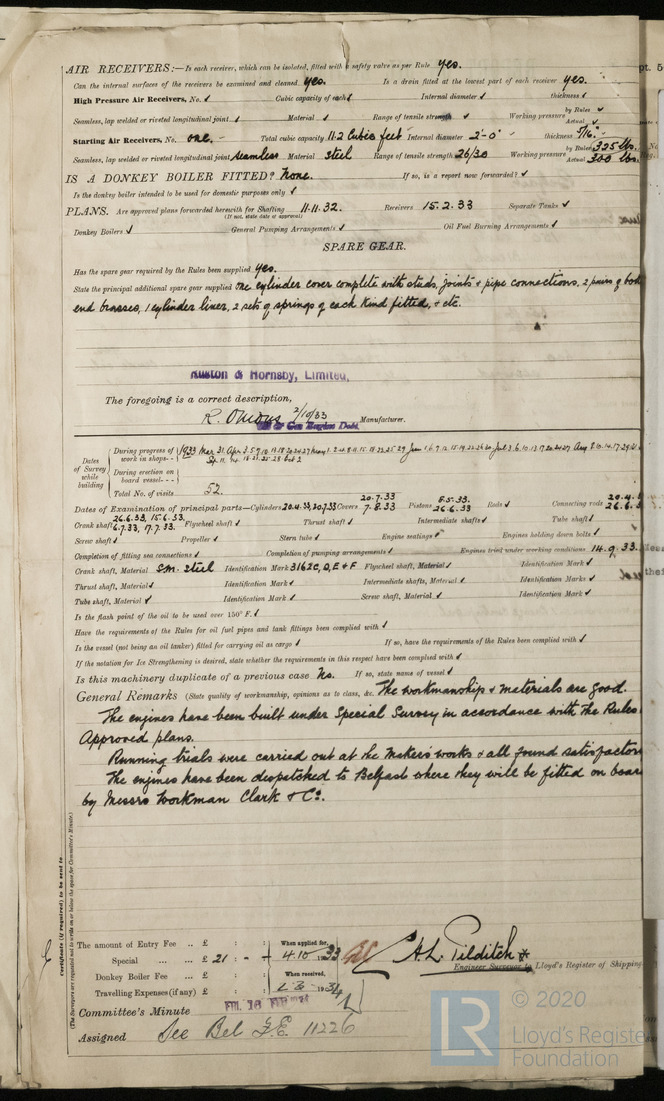 AIR RECEIVERS:—Is each receiver, which can be isolated, fitted with a safety valve as per Rule yes.
Can the internal surfaces of the receivers be examined and cleaned yes. Is a drain fitted at the lowest part of each receiver yes.
High Pressure Air Receivers, No. ✓ Cubic capacity of each ✓ Internal diameter ✓ thickness ✓
Seamless, lap welded or riveted longitudinal joint ✓ Material ✓ Range of tensile strength ✓ Working pressure by Rules ✓ Actual ✓
Starting Air Receivers, No. one. Total cubic capacity 11.2 Cubic feet Internal diameter 2'-0" thickness 5/16"
Seamless, lap welded or riveted longitudinal joint Seamless Material Steel Range of tensile strength 26/30 Working pressure by Rules 325 lbs. Actual 300 lbs.
IS A DONKEY BOILER FITTED? None. If so, is a report now forwarded? ✓
Is the donkey boiler intended to be used for domestic purposes only ✓
PLANS. Are approved plans forwarded herewith for Shafting 11.11.32. Receivers 15.2.33 Separate Tanks ✓
(If not, state date of approval)
Donkey Boilers ✓ General Pumping Arrangements ✓ Oil Fuel Burning Arrangements ✓
SPARE GEAR.
Has the spare gear required by the Rules been supplied yes.
State the principal additional spare gear supplied One cylinder cover complete with studs, joints & pipe connections, 2 pairs of
end brasses, 1 cylinder liner, 2 sets of springs of each kind fitted, & etc.
Ruston & Hornsby, Limited.
The foregoing is a correct description,
2/10/33 Manufacturer.
Dates of Survey while building
During progress of work in shops - - 1933 Mar. 31. Apr. 3. 5. 9.
During erection on board vessel - -
Total No. of visits 52.
Dates of Examination of principal parts—Cylinders 20.4.33, 20.7.33 Covers 20.7.33 7.8.33 Pistons 26.6.33 Rods ✓ Connecting rods
Crank shaft 26.6.33, 15.6.33, 6.7.33, 7.7.33. Flywheel shaft ✓ Thrust shaft ✓ Intermediate shafts ✓ Tube shaft ✓
Screw shaft ✓ Propeller ✓ Stern tube ✓ Engine seatings Engines holding down bolts ✓
Completion of fitting sea connections ✓ Completion of pumping arrangements ✓ Engines tried under working conditions 14.9.33.
Crank shaft, Material S.M. Steel Identification Mark 3162C, D, E & F Flywheel shaft, Material ✓ Identification Mark ✓
Thrust shaft, Material ✓ Identification Mark ✓ Intermediate shafts, Material ✓ Identification Marks ✓
Tube shaft, Material ✓ Identification Mark ✓ Screw shaft, Material ✓ Identification Mark ✓
Is the flash point of the oil to be used over 150° F. ✓
Have the requirements of the Rules for oil fuel pipes and tank fittings been complied with ✓
Is the vessel (not being an oil tanker) fitted for carrying oil as cargo ✓ If so, have the requirements of the Rules been complied with ✓
If the notation for Ice Strengthening is desired, state whether the requirements in this respect have been complied with ✓
Is this machinery duplicate of a previous case No. If so, state name of vessel ✓
General Remarks (State quality of workmanship, opinions as to class, &c. The workmanship & materials are good.
The engines have been built under Special Survey in accordance with the Rules
Approved plans.
Running trials were carried out at the makers works & all found
The engines have been despatched to Belfast where they will be fitted on
by Messrs Workman Clark & Co.
Certificate (if required) to be sent to
(The Surveyors are requested not to write on or below the space for Committee's Minute.)
The amount of Entry Fee .. £ : : When applied for,
Special ... ... £ 21 : - : 4.10.1933
Donkey Boiler Fee ... £ : : When received,
Travelling Expenses (if any) £ : :
A.L. Tilditch
Engineer Surveyor to Lloyd's Register of Shipping
Committee's Minute FRI. 16 FEB 1934
Assigned See Bel F.E. 11226
LR © 2020
Lloyd's Register
Foundation